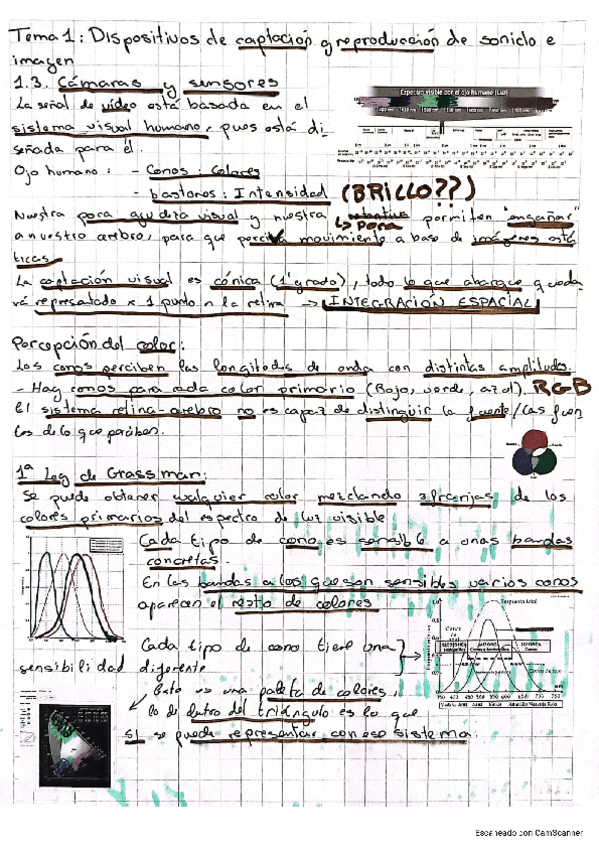 Tema 1: Dispositivos de captación y reproducción de sonido e
imagen
1.3. Cámaras y sensores
La señal de vídeo está basada en el
sistema visual humano, pues está di-
señada para él.
Espectro visible por el ojo humano (Luz)
Ojo humano: - Conos Colores
- bastones: Intensidad (BRILLO??)
Nuestra poca agudeza visual y nuestra retentiva permiten "engañar"
↳ poca
a nuestro cerebro, para que perciva movimiento a base de imágenes está
ticas
La captación visual es cónica (1°grado), todo lo que abarque queda
rá represatado x 1 punto n la retina → INTEGRACIÓN ESPACIAL
Percepción del color:
Los conos perciben las longitudes de onda con distintas amplitudes
- Hay conos para cada color primario (Rojo, verde, azul). RGB
El sistema retina-cerebro no es capaz de distinguir la fuente/las fuen
tes de lo que perciben.
1ª Ley de Grassman:
Se puede obtener cualquier color mezclando 3 franjas de los
colores primarios del espectro de luz visible
Cada tipo de cono es sensible a unas bandas
concretas.
En las bandas a las que son sensibles varios conos
aparecen el resto de colores
Cada tipo de cono tiene una
sensibilidad diferente
Esto es una paleta de colores,
lo de dentro del triángulo es lo que
sí se puede representar con ese sistema.
Escaneado con CamScanner